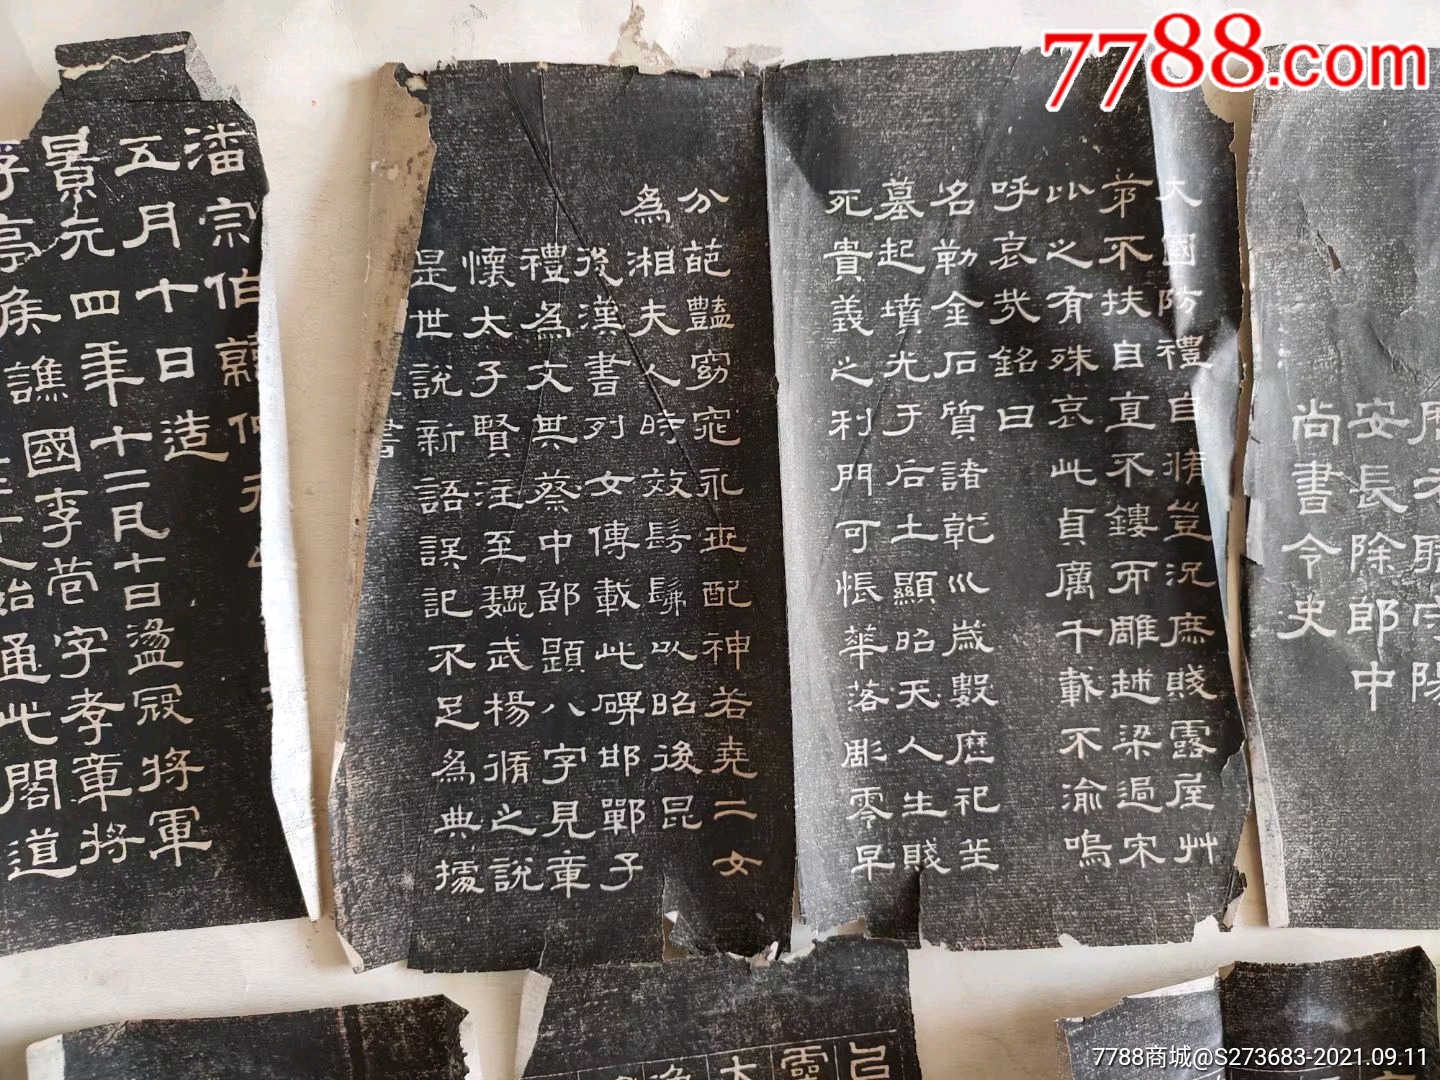 安長除郎中
尚書令史
大國防禮自脩豈況庶賤露屋艸
茅不扶自直不鏤而雕越梁過宋
比之有殊哀此貞厲千載不渝嗚
呼哀㦲銘曰
名勒金石質諸乾巛歲數歷祀丘
墓起墳光于后土顯昭天人生賤
死貴義之利門可悵華落彫零早
分葩豔窈窕永世配神若堯二女
為相夫人時效髣髴以昭後昆
後漢書列女傳載此碑邯鄲子
禮為文其蔡中郎題八字見章
懷太子賢注至魏武楊脩之說
是世說新語誤記不足為典據
書
潘宗伯韓仲元
五月十日造
景元四年十二月十日盪寇將軍
浮亭侯譙國李苞字孝章將
人始通此閣道
靈
7788.com
7788商城@S273683-2021.09.11